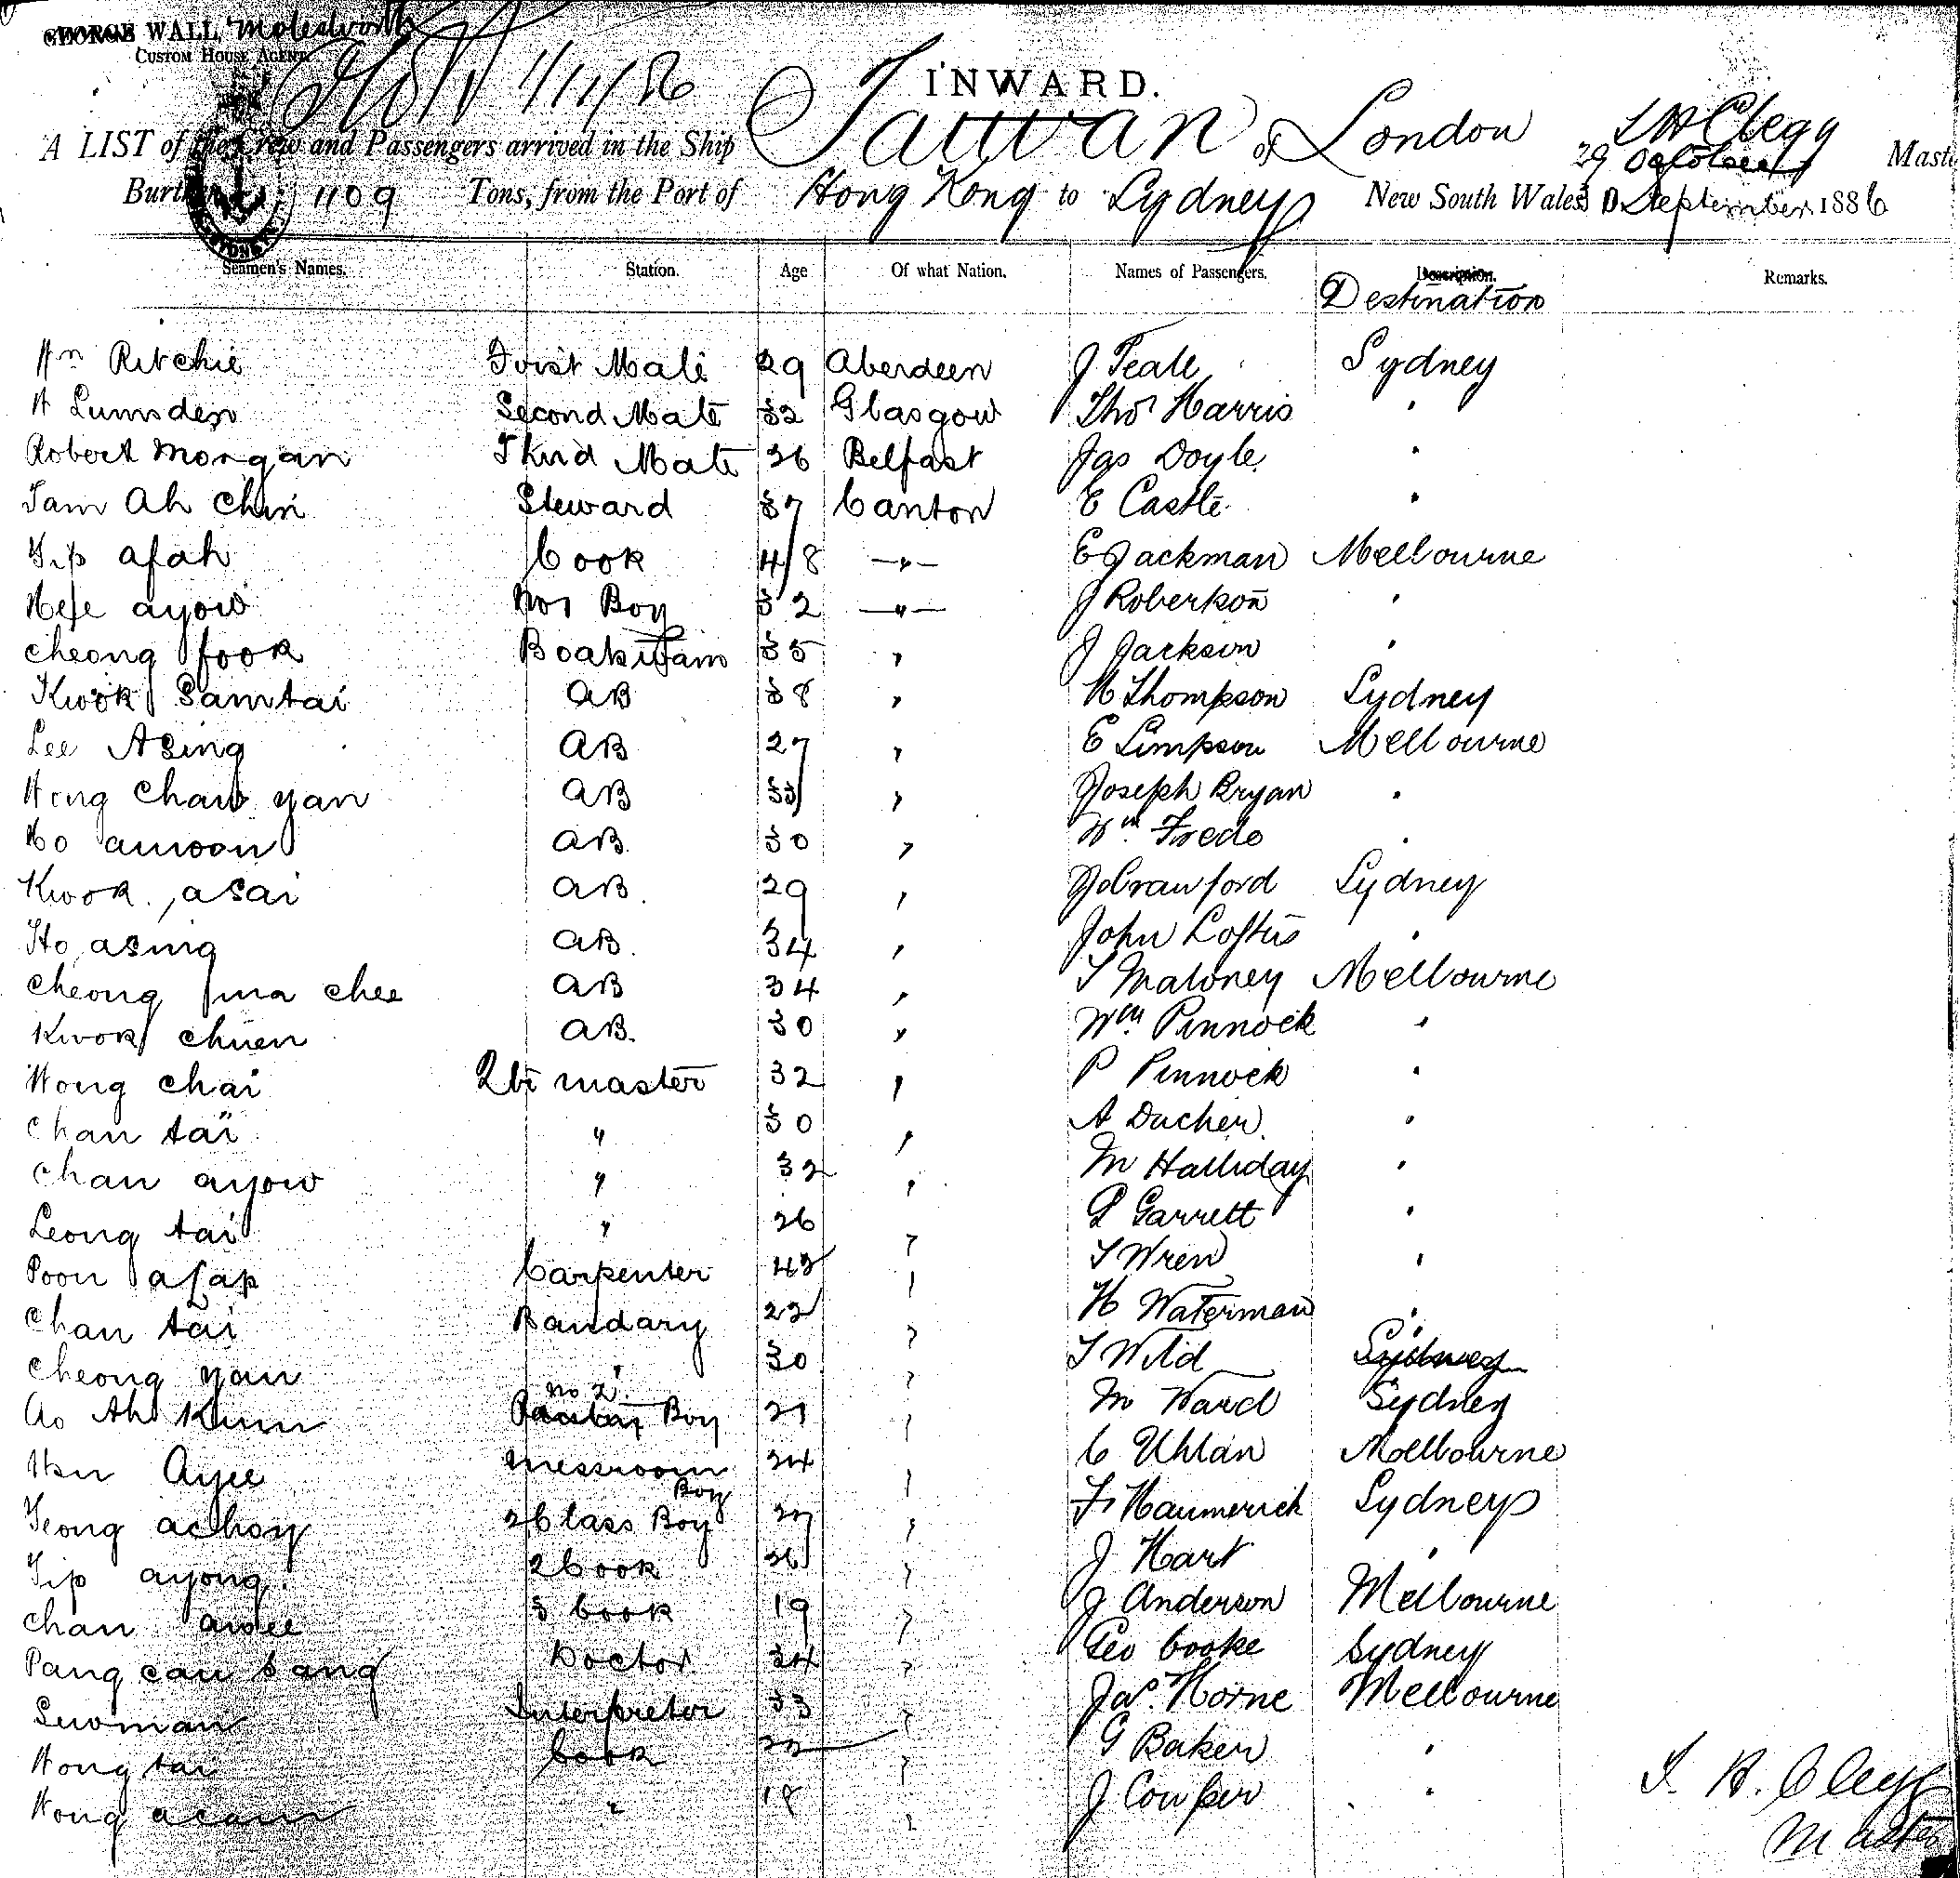 GEORGE WALL, Molesworth
CUSTOM HOUSE AGENT
1/11/86
INWARD.
A LIST of the Crew and Passengers arrived in the Ship Taiwan of London Clegg Mast
29 October
Burthen 1109 Tons, from the Port of Hong Kong to Sydney New South Wales September 1886
Seamen's Names. Station. Age Of what Nation. Names of Passengers. Description. Remarks.
Destination
Wm Ritchie First Mate 29 Aberdeen J Teale Sydney
A Lumsden Second Mate 32 Glasgow Thos Harris "
Robert Morgan Third Mate 26 Belfast Jas Doyle "
Tam Ah Chin Steward 37 Canton E Castle "
Yip afah Cook 48 " E Jackman Melbourne
ayow No 1 Boy 32 " J Robertson "
Cheong fook 35 " J Jackson "
Kwok Samtai AB 38 " Thompson Sydney
Lee Asing AB 27 " E Simpson Melbourne
Wong Chaw yan AB 33 " Joseph Bryan "
Ho amoon AB 30 " Wm "
Kwok asai AB 29 " Crawford Sydney
Ho asing AB 34 " John Loftus "
Cheong chee AB 34 " T Maloney Melbourne
Kwok chuen AB 30 " Wm Pinnock "
Wong chai Qtr master 32 " P Pinnock "
Chan tai " 30 " A Ducher "
Chan ayow " 32 " M Halliday "
Leong tai " 26 " P Garrett "
Poon Carpenter 42 " T Wren "
Chan tai Bandary 22 " H Waterman "
Cheong yan " 30 " T Wild Sydney
Ao Ah Kum no 2 Pantry Boy 21 " M Ward Sydney
Ayee messroom Boy 24 " C Uhlan Melbourne
Yeong achoy 2 Class Boy 27 " F Sydney
Yip ayong 2 Cook 26 " J Hart "
Chan 3 Cook 19 " J Anderson Melbourne
Pang cau sang Doctor 34 " Geo Cooke Sydney
Interpreter 33 " Jas. Horne Melbourne
Wong tai Cook 22 " G Baker "
Wong acam " 18 " J Cowper "
H. Clegg
Master